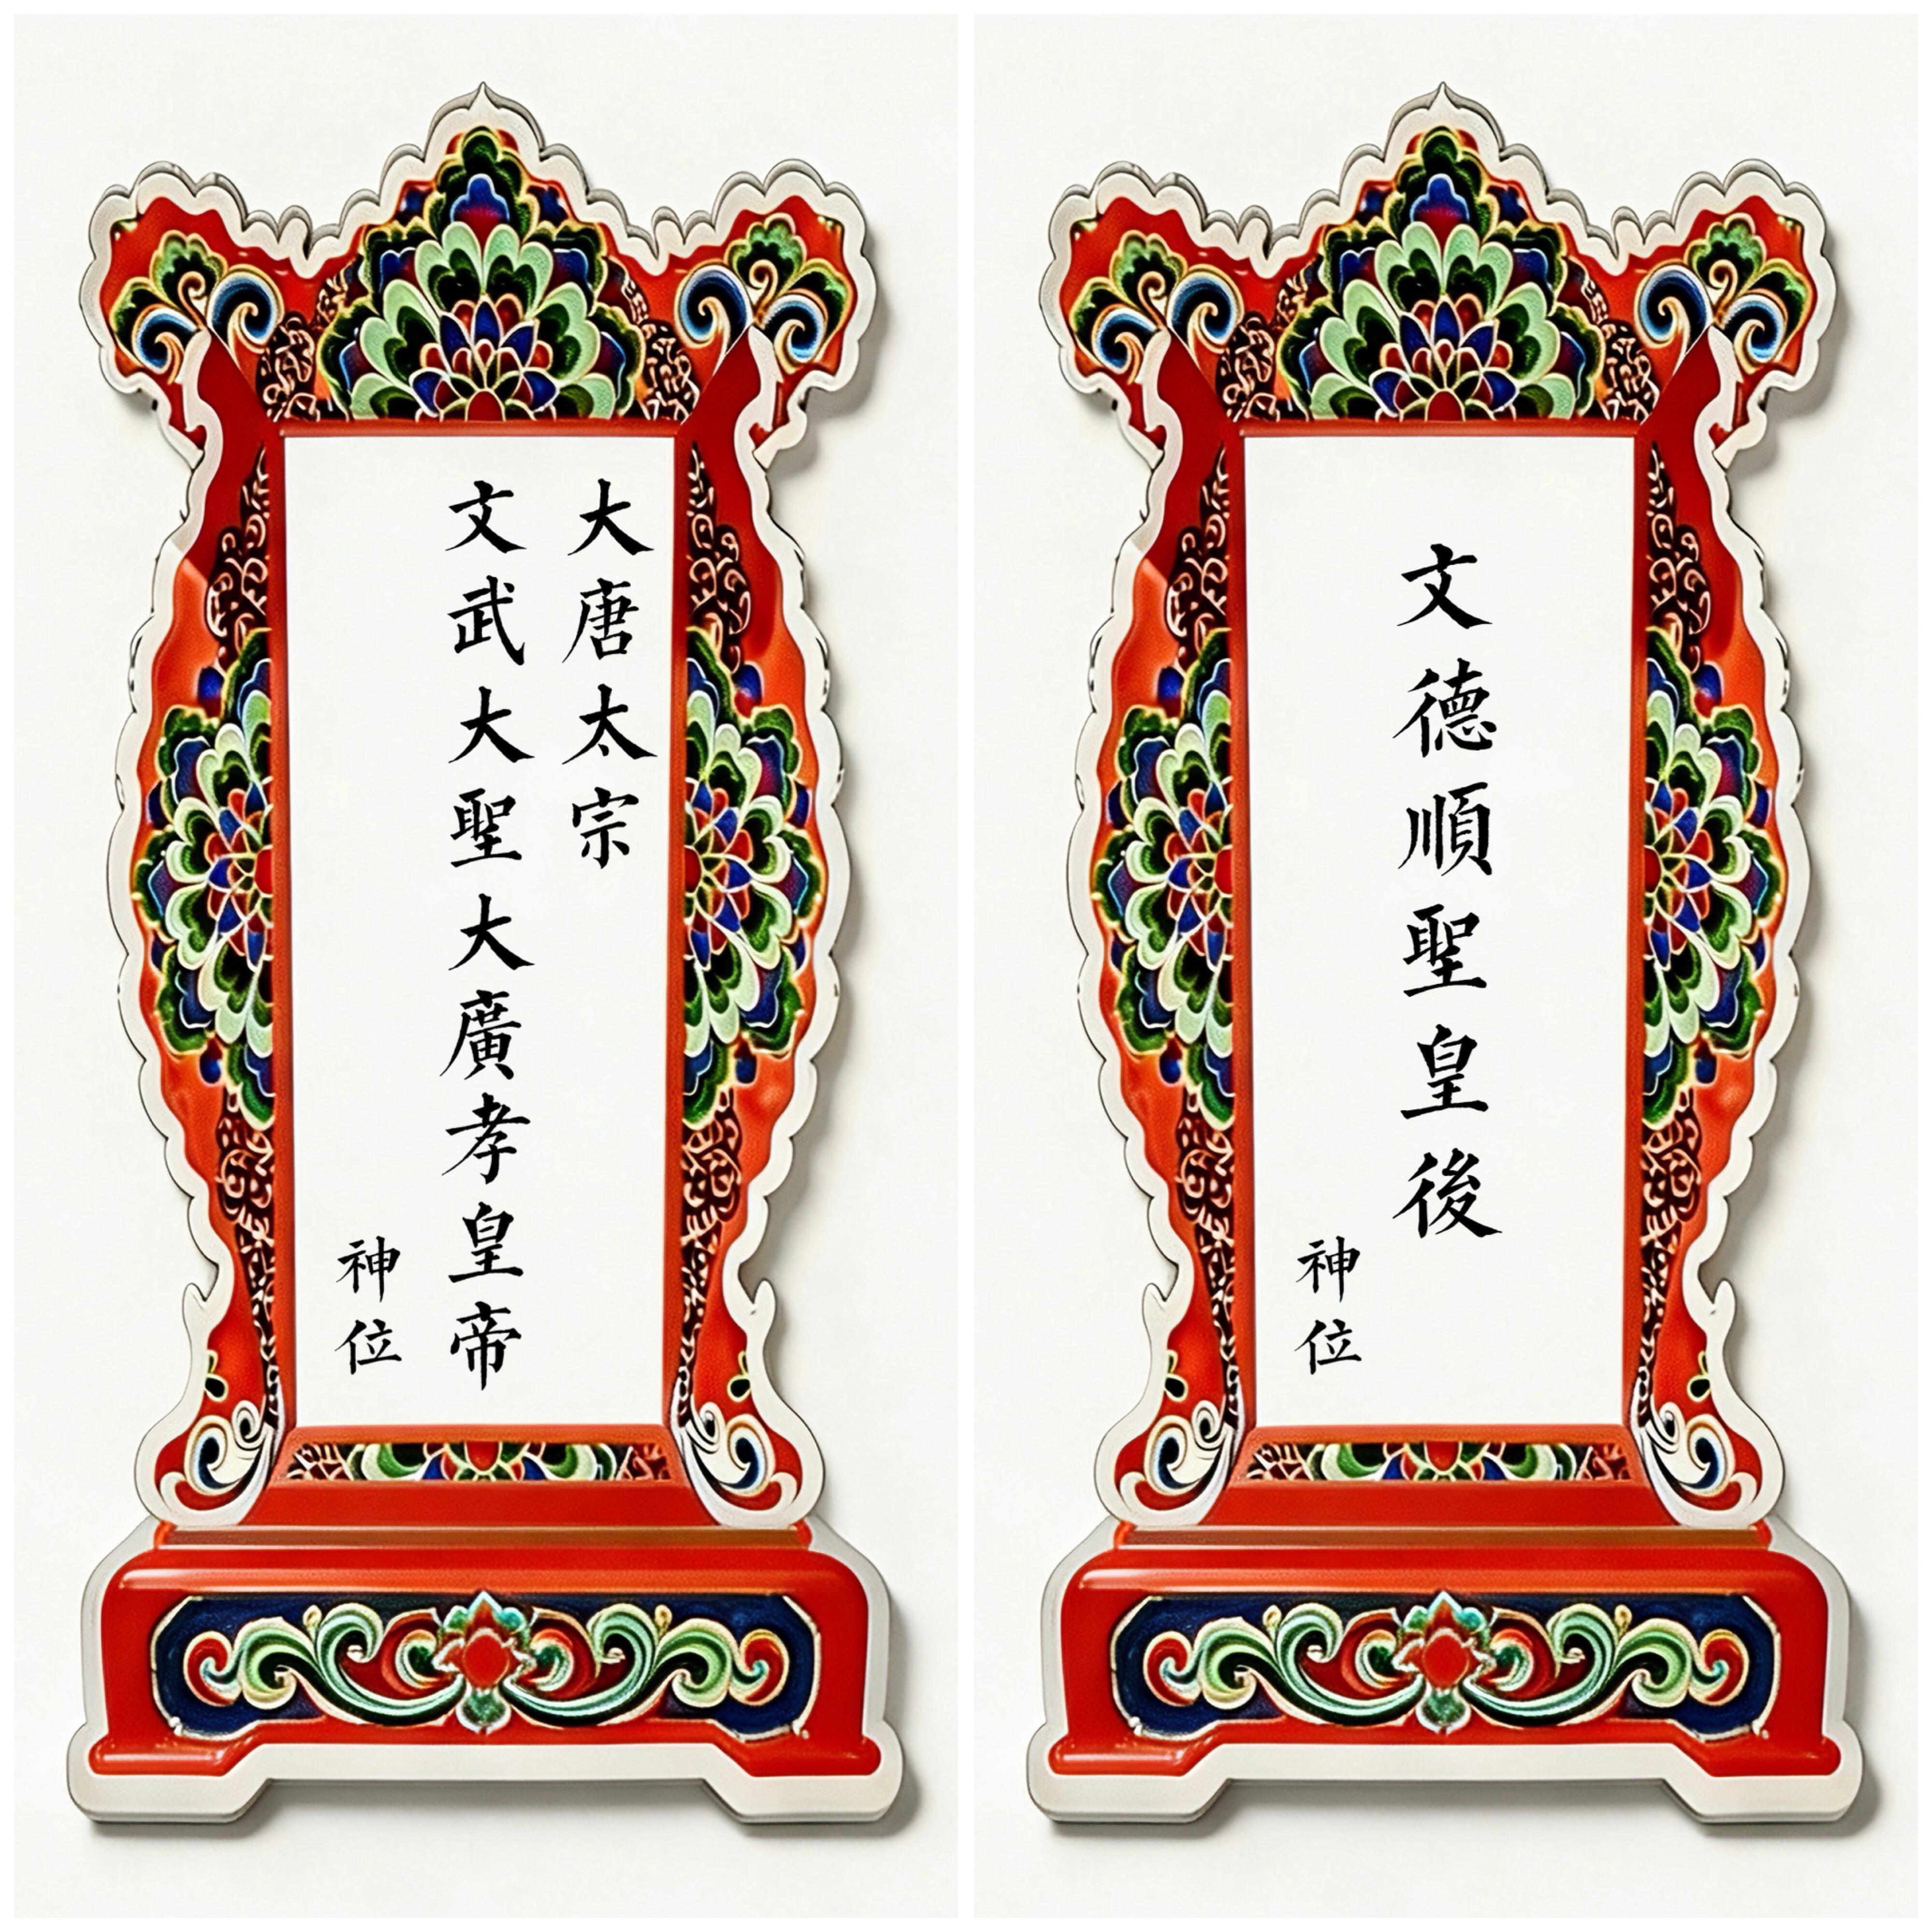 大唐太宗
文武大聖大廣孝皇帝
神位
文德順聖皇後
神位